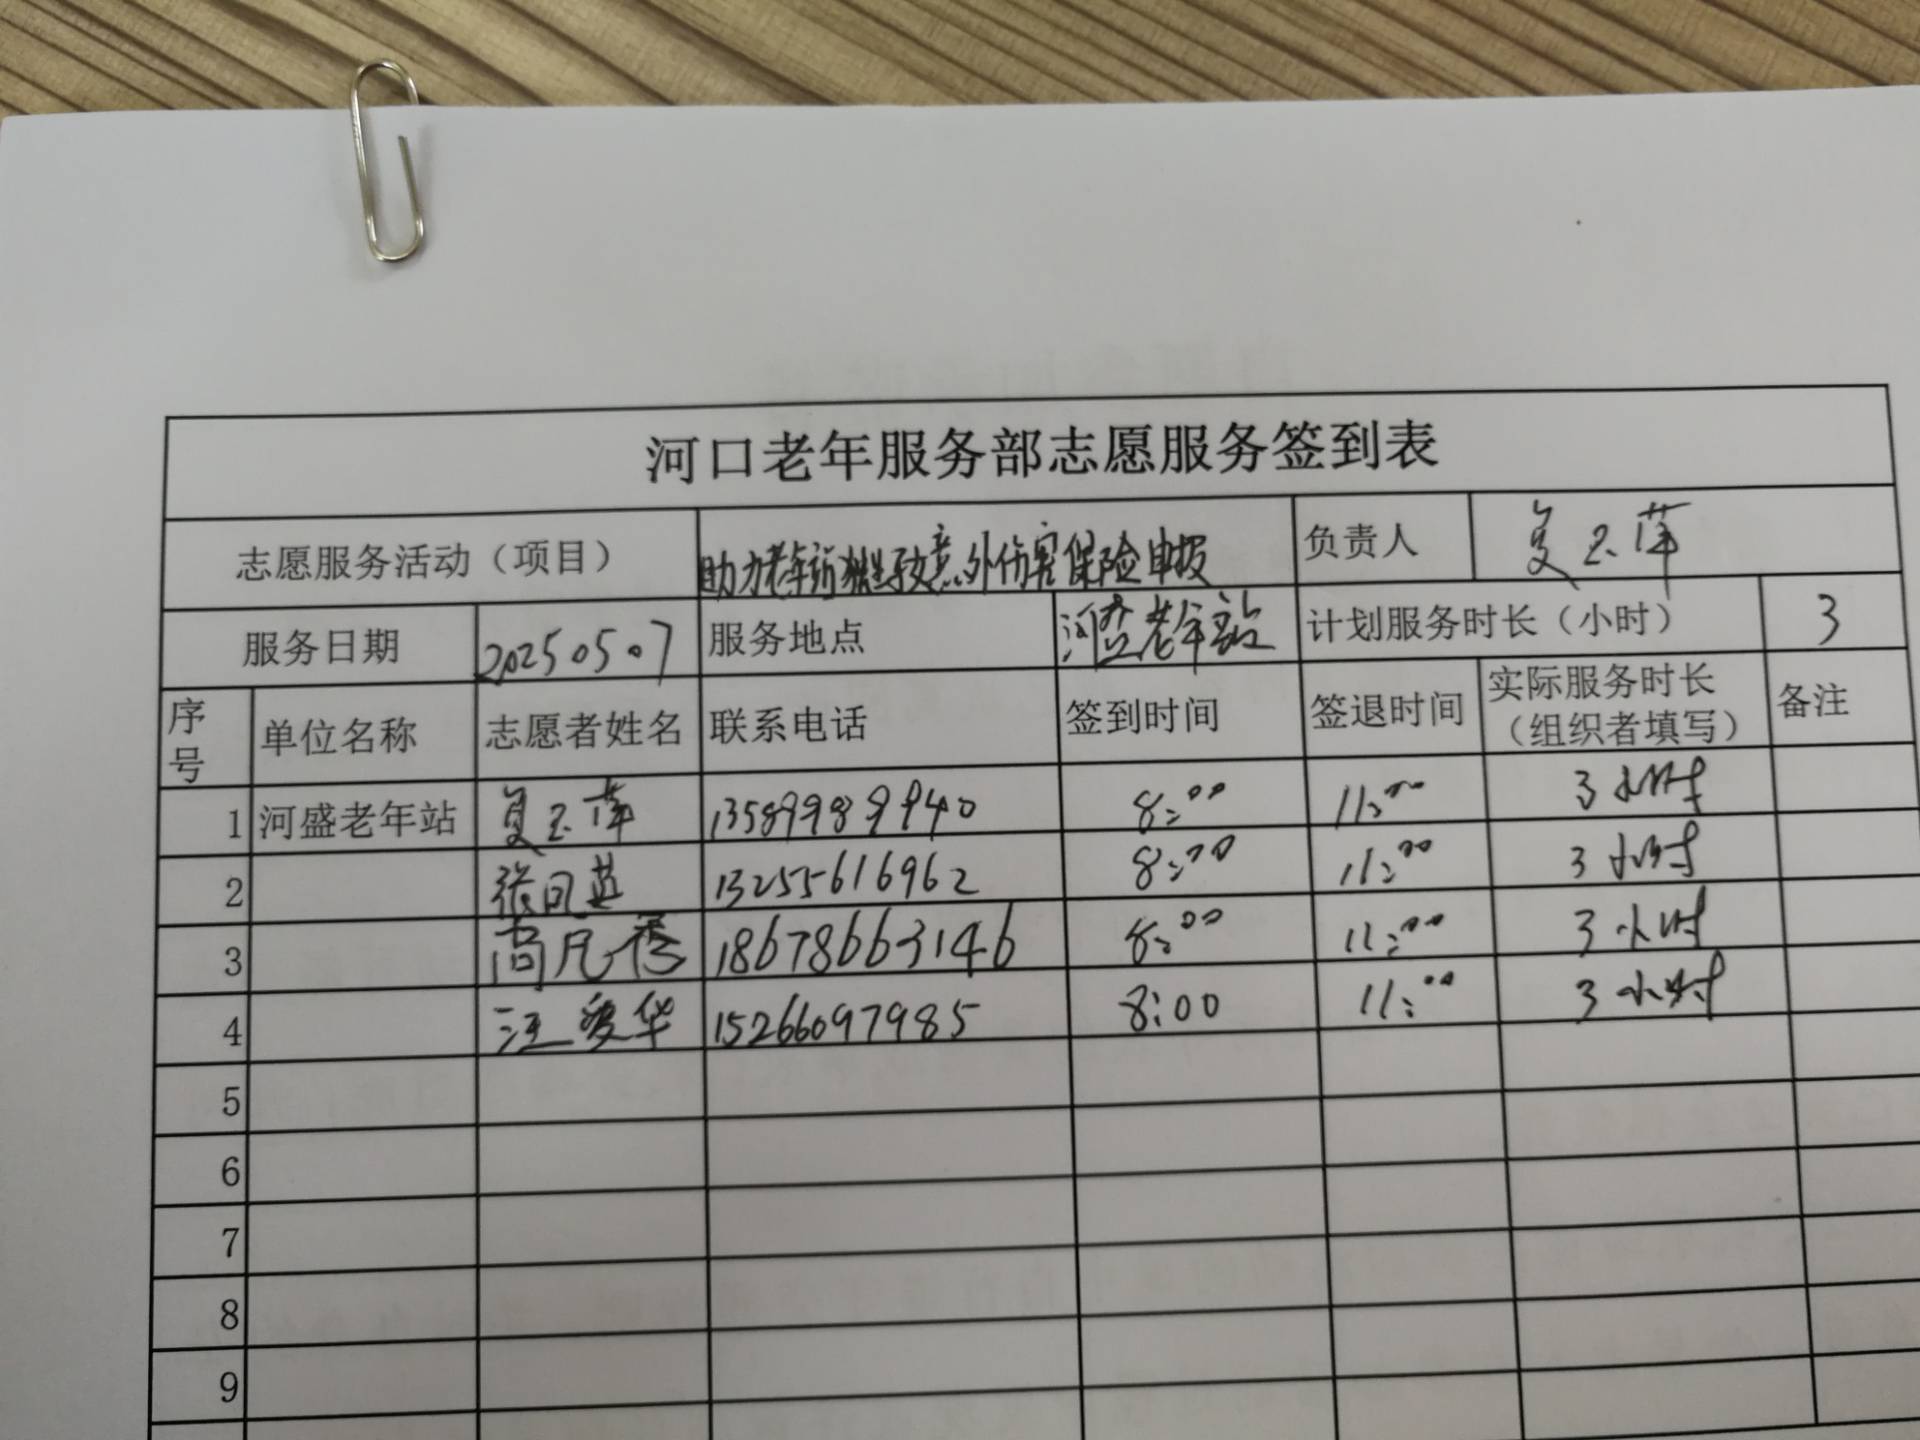 河口老年服务部志愿服务签到表
志愿服务活动（项目） 助力老年 意外伤害保险申报 负责人 夏玉萍
服务日期 2025.05.07 服务地点 河盛老年站 计划服务时长（小时） 3
序号 单位名称 志愿者姓名 联系电话 签到时间 签退时间 实际服务时长（组织者填写） 备注
1 河盛老年站 夏玉萍 13589989940 8:00 11:00 3小时
2 张凤英 13255616962 8:00 11:00 3小时
3 高凡秀 18678663146 8:00 11:00 3小时
4 汪爱华 15266097985 8:00 11:00 3小时
5
6
7
8
9